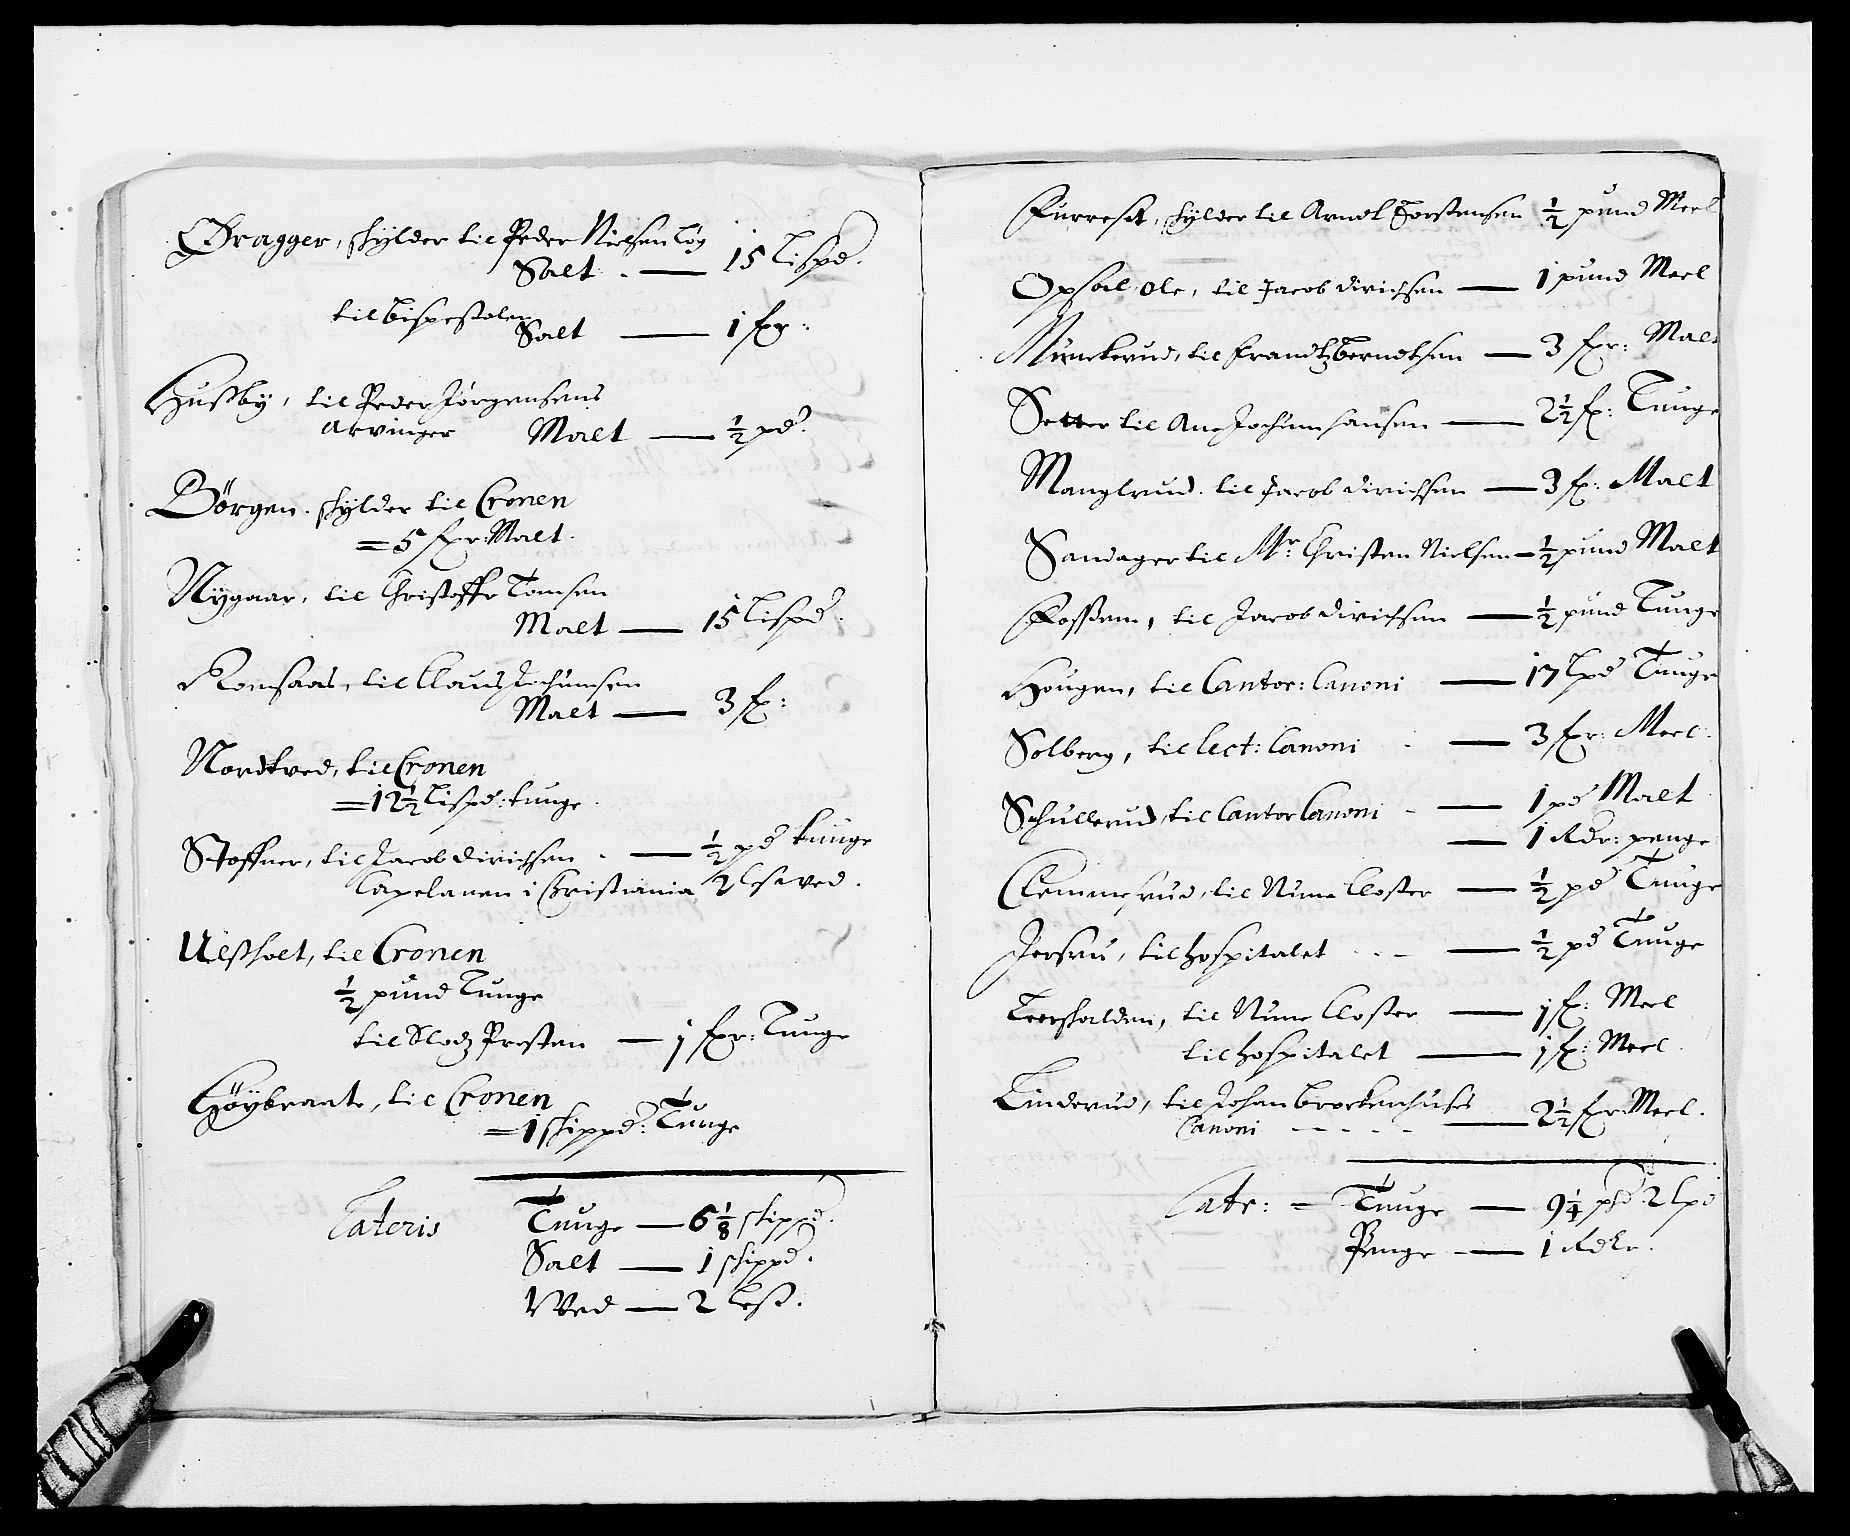 Øragger, schylder til Peder Nielsen Løg
Salt . — 15 Lispd.
til bispestolen
Salt — 1 fxr:
Hußby, til Peder Jørgensens
Arvinger Malt — ½ pd.
Børgen. schylder til Cronen
= 5 fxr: Malt.
Nygaar, til Christoffr Tomsen
Malt — 15 Lispd.
Romsaas, til Claus Jochumsen
Malt — 3 fx:
Nordtved, til Cronen
= 12½ Lispd: tunge.
Stoffner, til Jacob Dirichsen . — ½ pd tunge
Capelanen i Christiania, 2 les ved.
Ulsholt, til Cronen
½ pund Tunge
til Slodz Presten — 1 fxr: Tunge
Høybraate, til Cronen
= 1 schippd: Tunge
Lateris Tunge — 6⅛ schippd.
Salt — 1 schippd.
Wed — 2 leß.
Furreset, schylder til Arndt Torstensen ½ pund Meel
Opsal Ole, til Jacob Dirichsen — 1 pund Meel
Munckerud, til Frandtz Berndtsen — 3 fxr: Malt
Setter til Ane Jochumhansen — 2½ fx: Tunge
Manglerud. til Jacob Dirichsen — 3 fx: Malt
Sandager til Mr Christen Nielsen — ½ pund Malt
Floßem, til Jacob Dirichsen — ½ pund Tunge
Hougen, til Cantor: Canoni — 17 Lpd Tunge
Solberg, til Lect: Canoni — 3 fxr: Meel.
Schullerud, til Cantor Canoni — 1 pd Malt
— 1 Rdr: penge
Clemmesrud, til Nunne Closter — ½ pd Tunge
Jersru, til hospitalet — ½ pd Tunge
Teershalden, til Nunne Closter — 1 fx: Meel
til hospitalet — 1 fx: Meel.
Linderud, til Johan Brockenhuses
Canoni — 2½ fxr: Meel.
Latr: = Tunge — 9¼ pd. 2 lpd
Penge — 1 Rdlr.